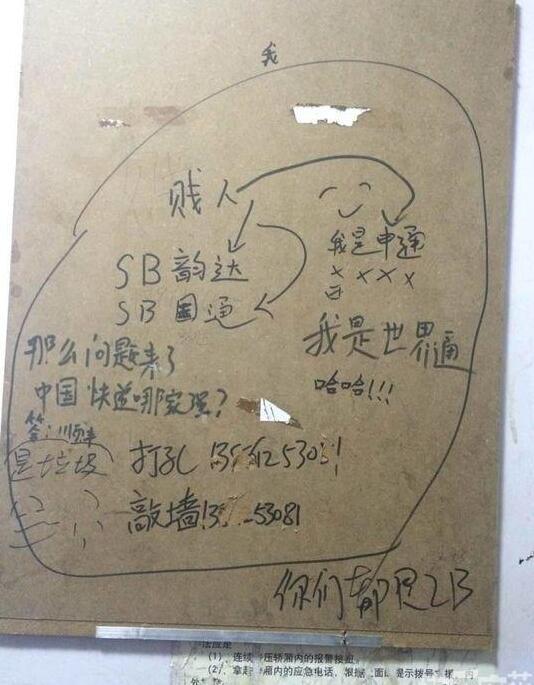 我
贱人
SB韵达
SB国通
我是申通
××××
我是世界通
哈哈!!!
那么问题来了
中国快递哪家强?
答:顺丰
是垃圾
打孔
敲墙
53081
你们都是2B
(1) 连续
压轿厢内的报警按
(2) 拿起
厢内的应急电话,根据
面
提示拨号